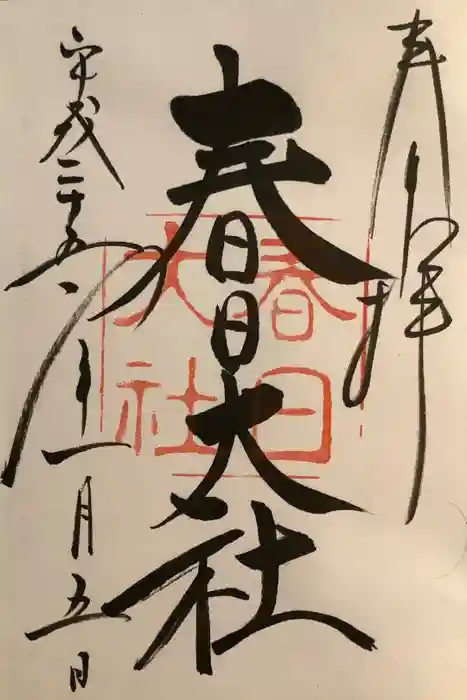 奉拝
春日大社
平成二十五年一月五日
春日
大社